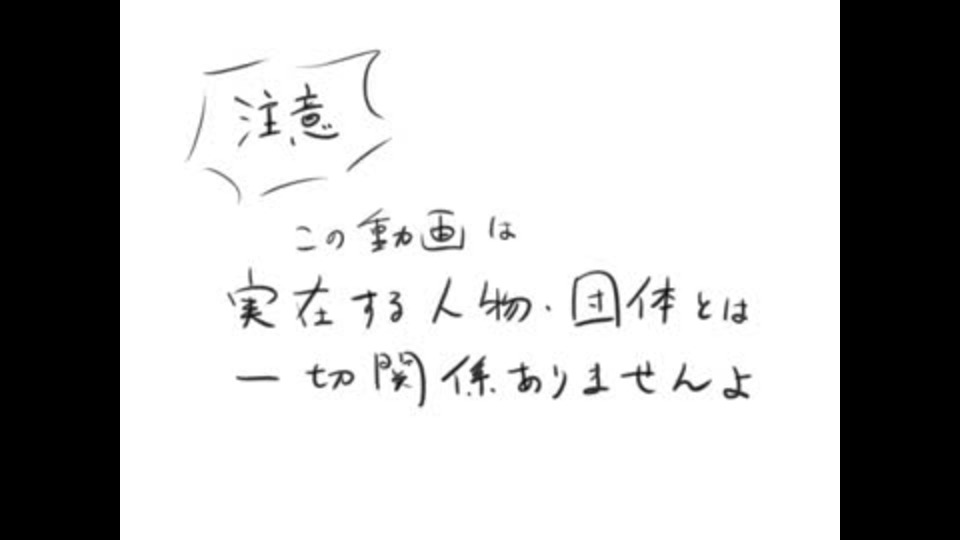 注意
この動画は
実在する人物・団体とは
一切関係ありませんよ